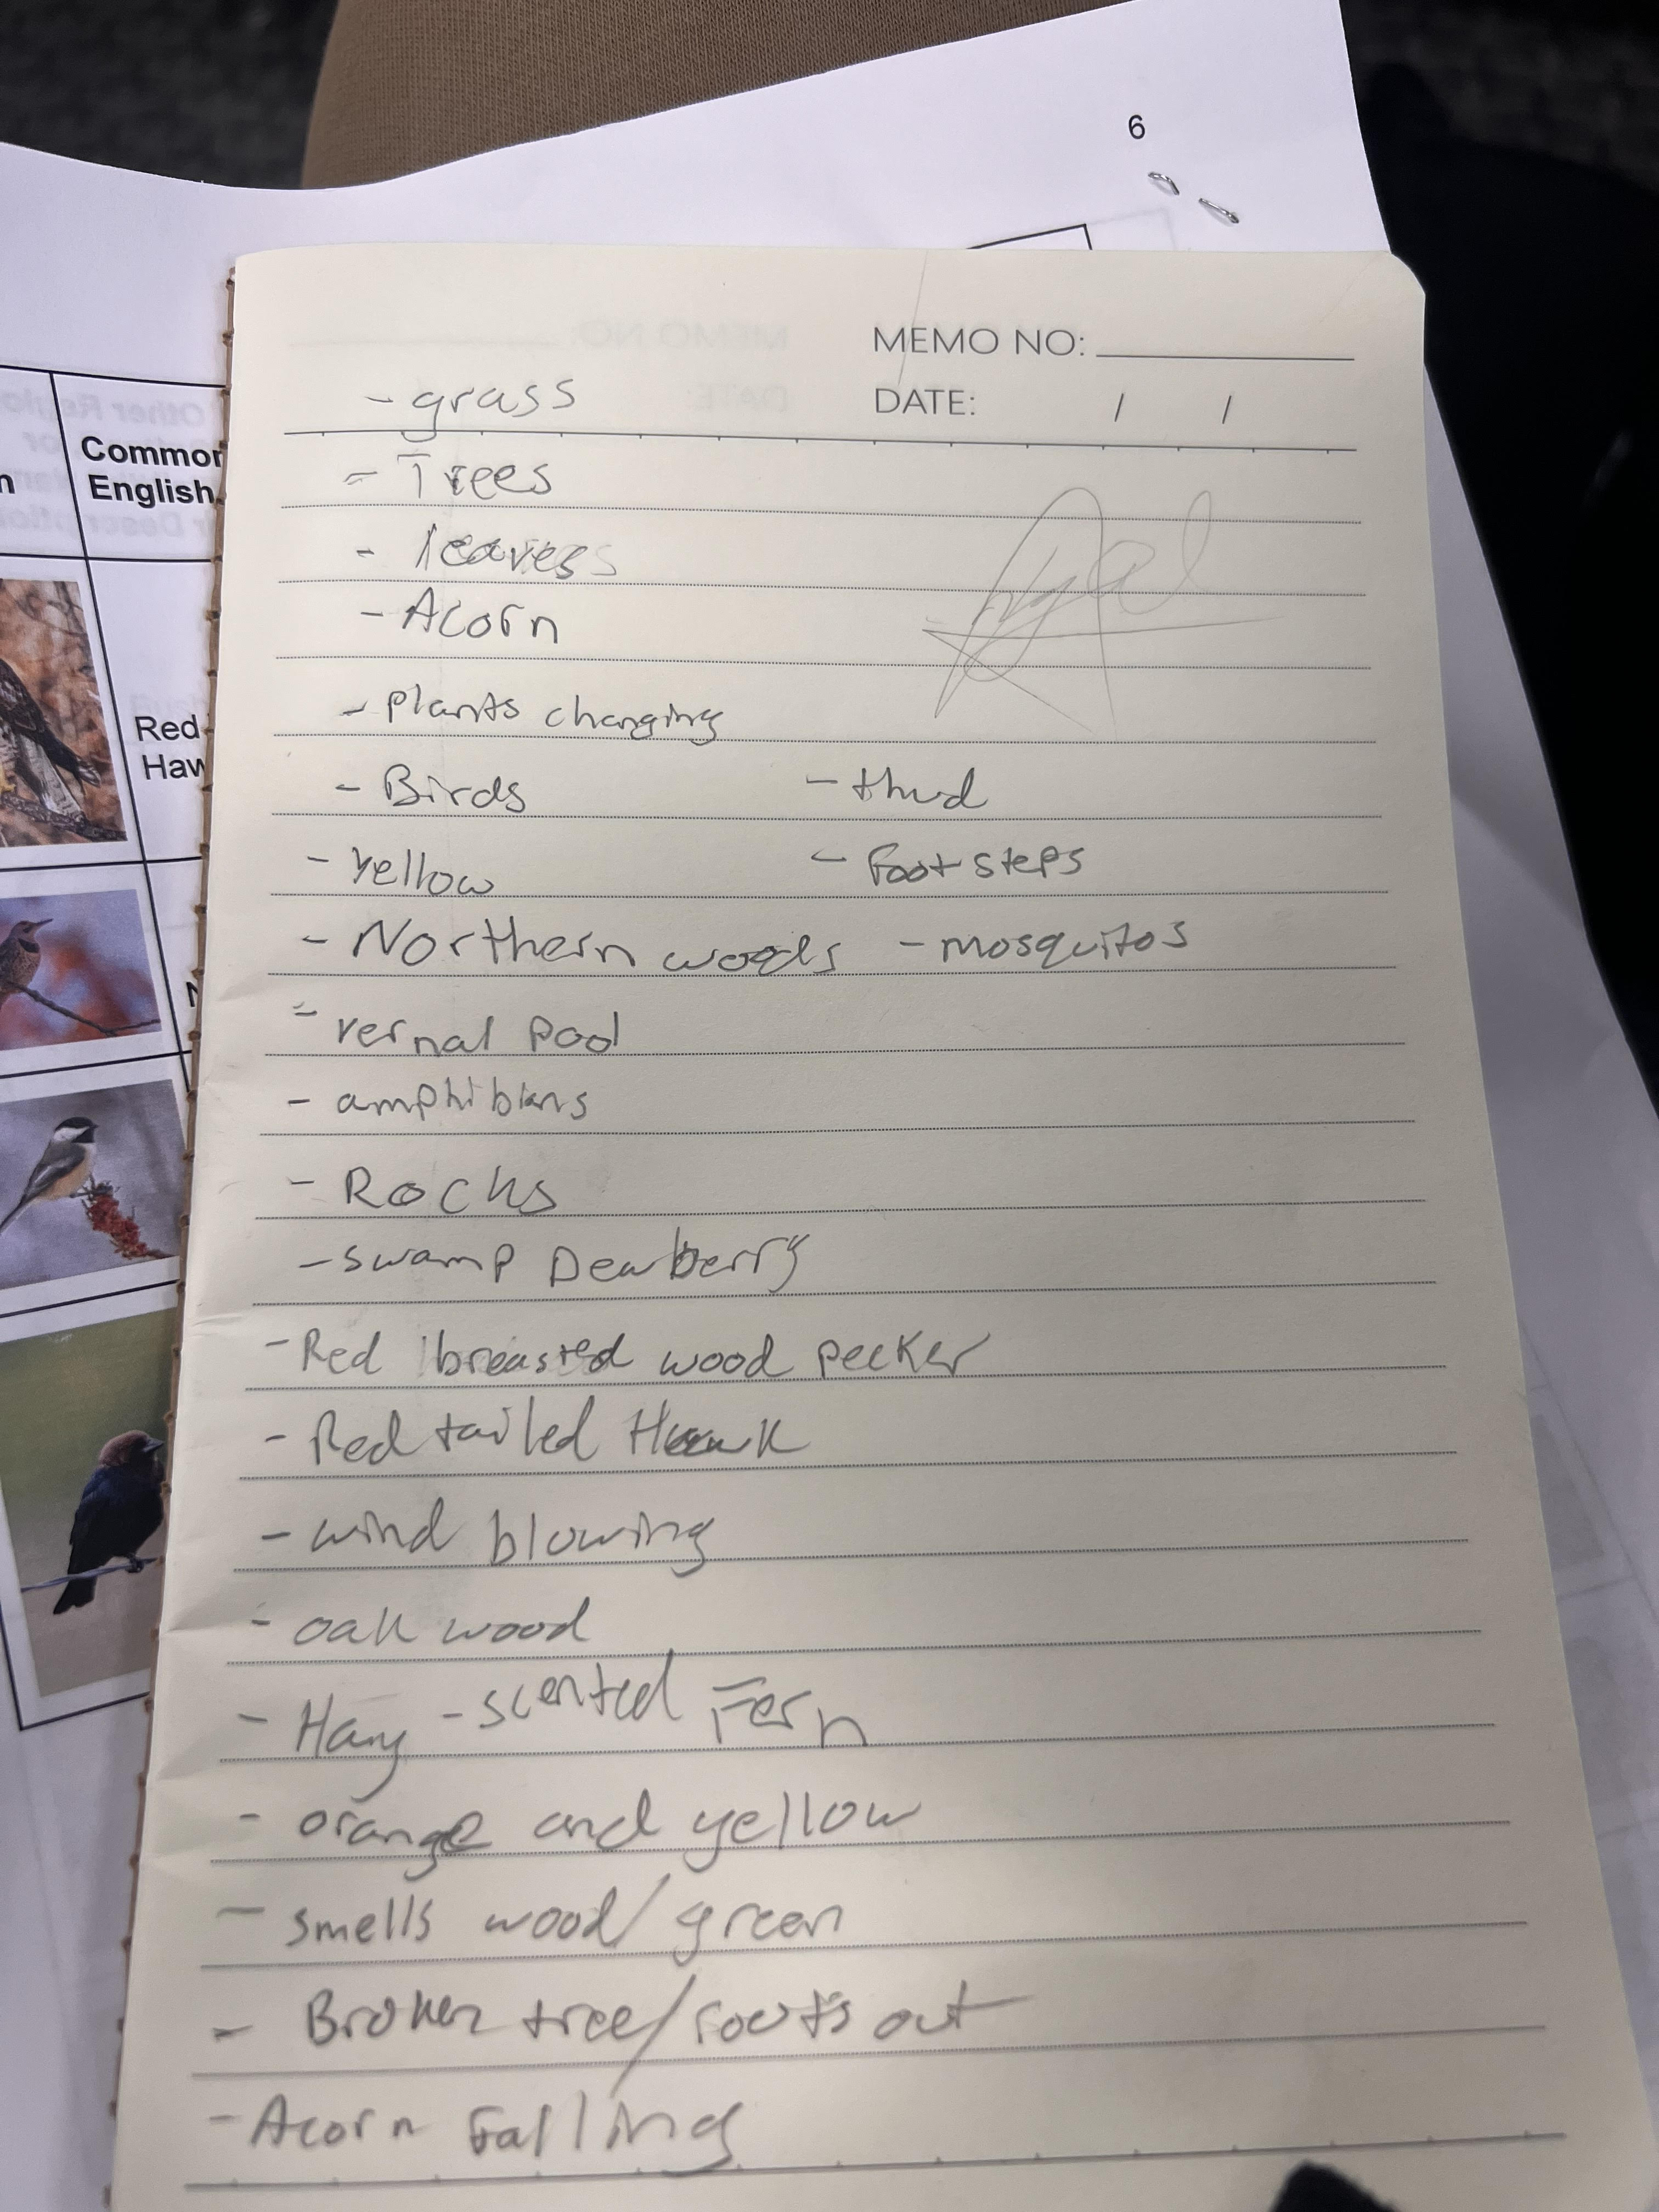 6
MEMO NO:
DATE: / /
Common
English
Red
Haw
- grass
- Trees
- leaves
- Acorn
- plants changing
- Birds - thud
- Yellow - Foot steps
- Northern woods - mosquitos
- vernal pool
- amphibians
- Rocks
- swamp Dewberry
- Red breasted wood pecker
- Red tailed Hawk
- wind blowing
- oak wood
- Hay-scented Fern
- orange and yellow
- smells wood/green
- Broken tree/roots out
- Acorn Falling